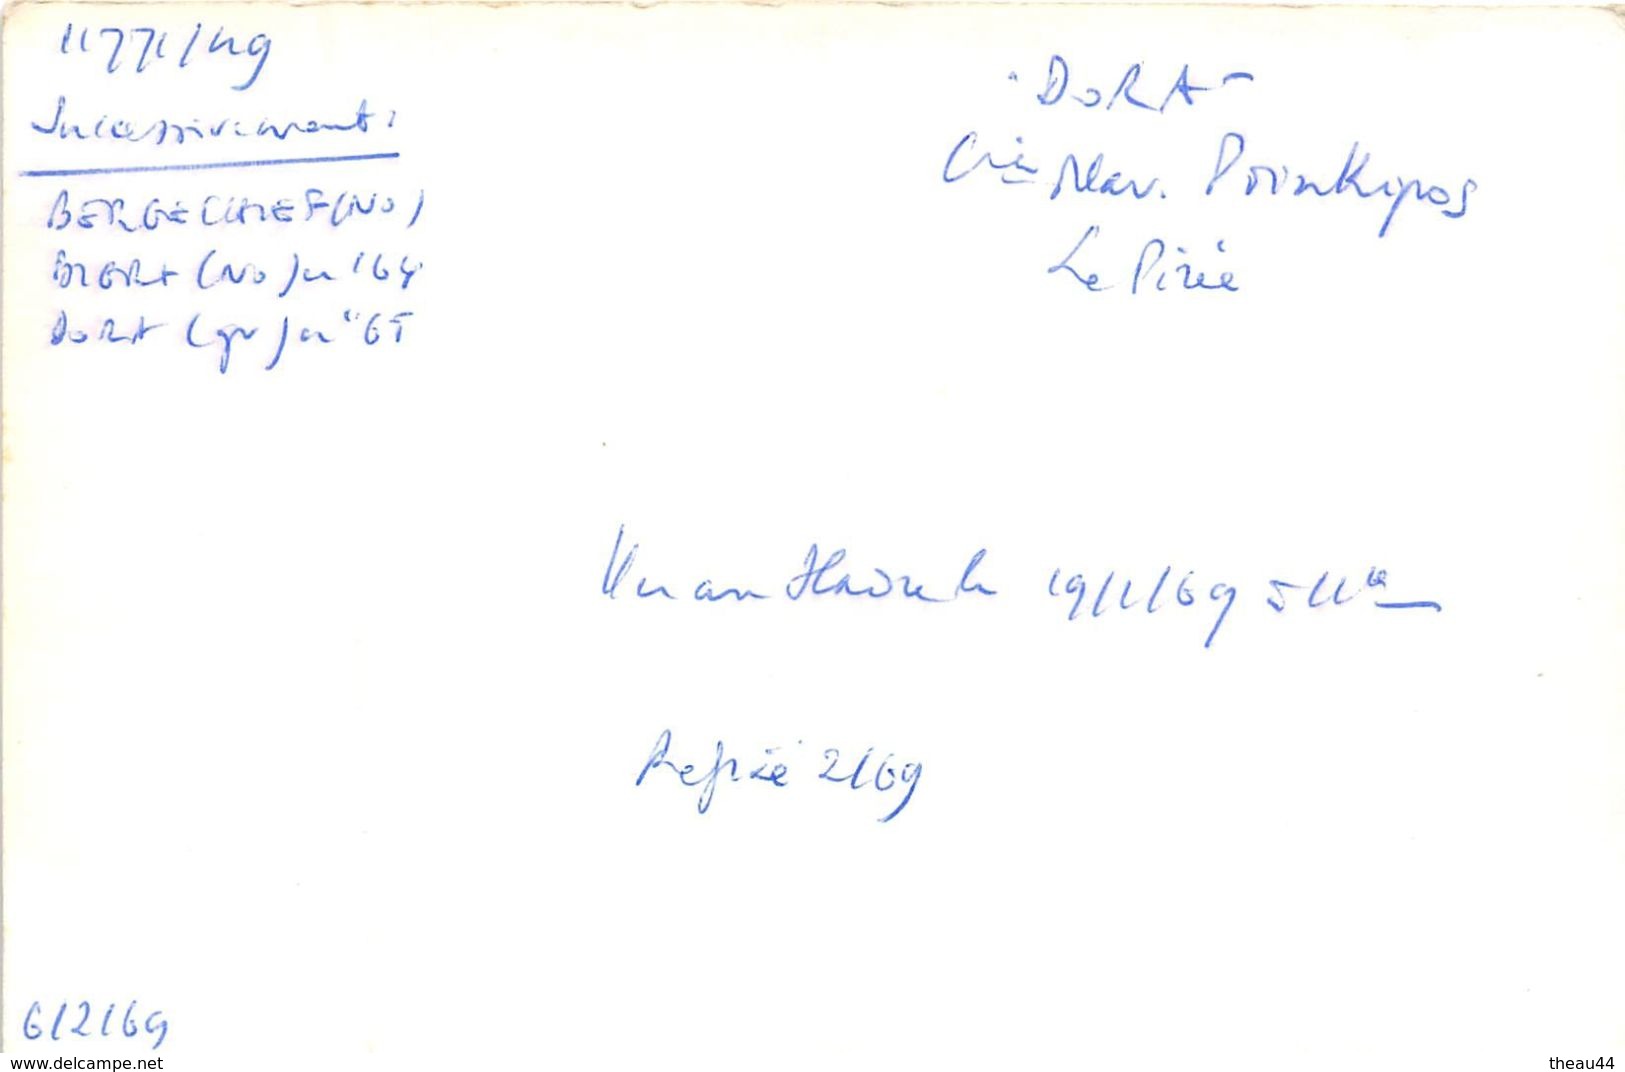 11771/49
Successivement:
BERGECHIEF (NO)
(NO) en '64
DORA (gr) en "65
"DORA"
Cie Nav. Prinkipos
Le Pirée
Vu au Havre le 19/1/69
Refixé 2/69
6/2/69
www.delcampe.net
theau44